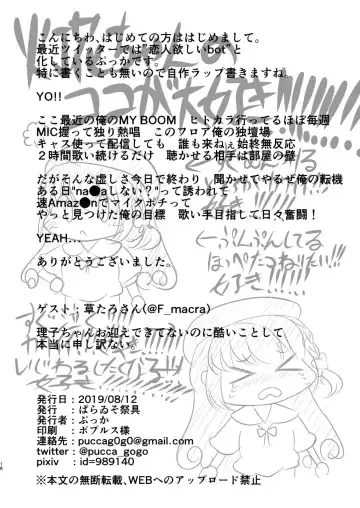 こんにちわ、はじめての方ははじめまして。
最近ツイッターでは"恋人欲しいbot"と
化しているぷっかです。
特に書くことも無いので自作ラップ書きますね。
YO!!
ここ最近の俺のMY BOOM　ヒトカラ行ってるほぼ毎週
MIC握って独り熱唱　このフロア俺の独壇場
キャス使って配信しても　誰も来ねぇ始終無反応
２時間歌い続けるだけ　聴かせる相手は部屋の壁
だがそんな虚しさ今日で終わり　聞かせてやるぜ俺の転機
ある日"na●aしない？"って誘われて
速Amaz●nでマイクポチって
やっと見つけた俺の目標　歌い手目指して日々奮闘！
YEAH...
ありがとうございました。
ゲスト：草たろさん(@F_macra)
理子ちゃんお迎えできてないのに酷いことして
本当に申し訳ない。
発行日：2019/08/12
発行　：ばらゐそ祭具
発行者：ぷっか
印刷　：ポプルス様
連絡先：puccag0g0@gmail.com
twitter：@pucca_gogo
pixiv　：id=989140
※本文の無断転載、WEBへのアップロード禁止
ココが大好き!!!
←ぷんぷんしてる
ほっぺたつねりたい!!
好き!!!!